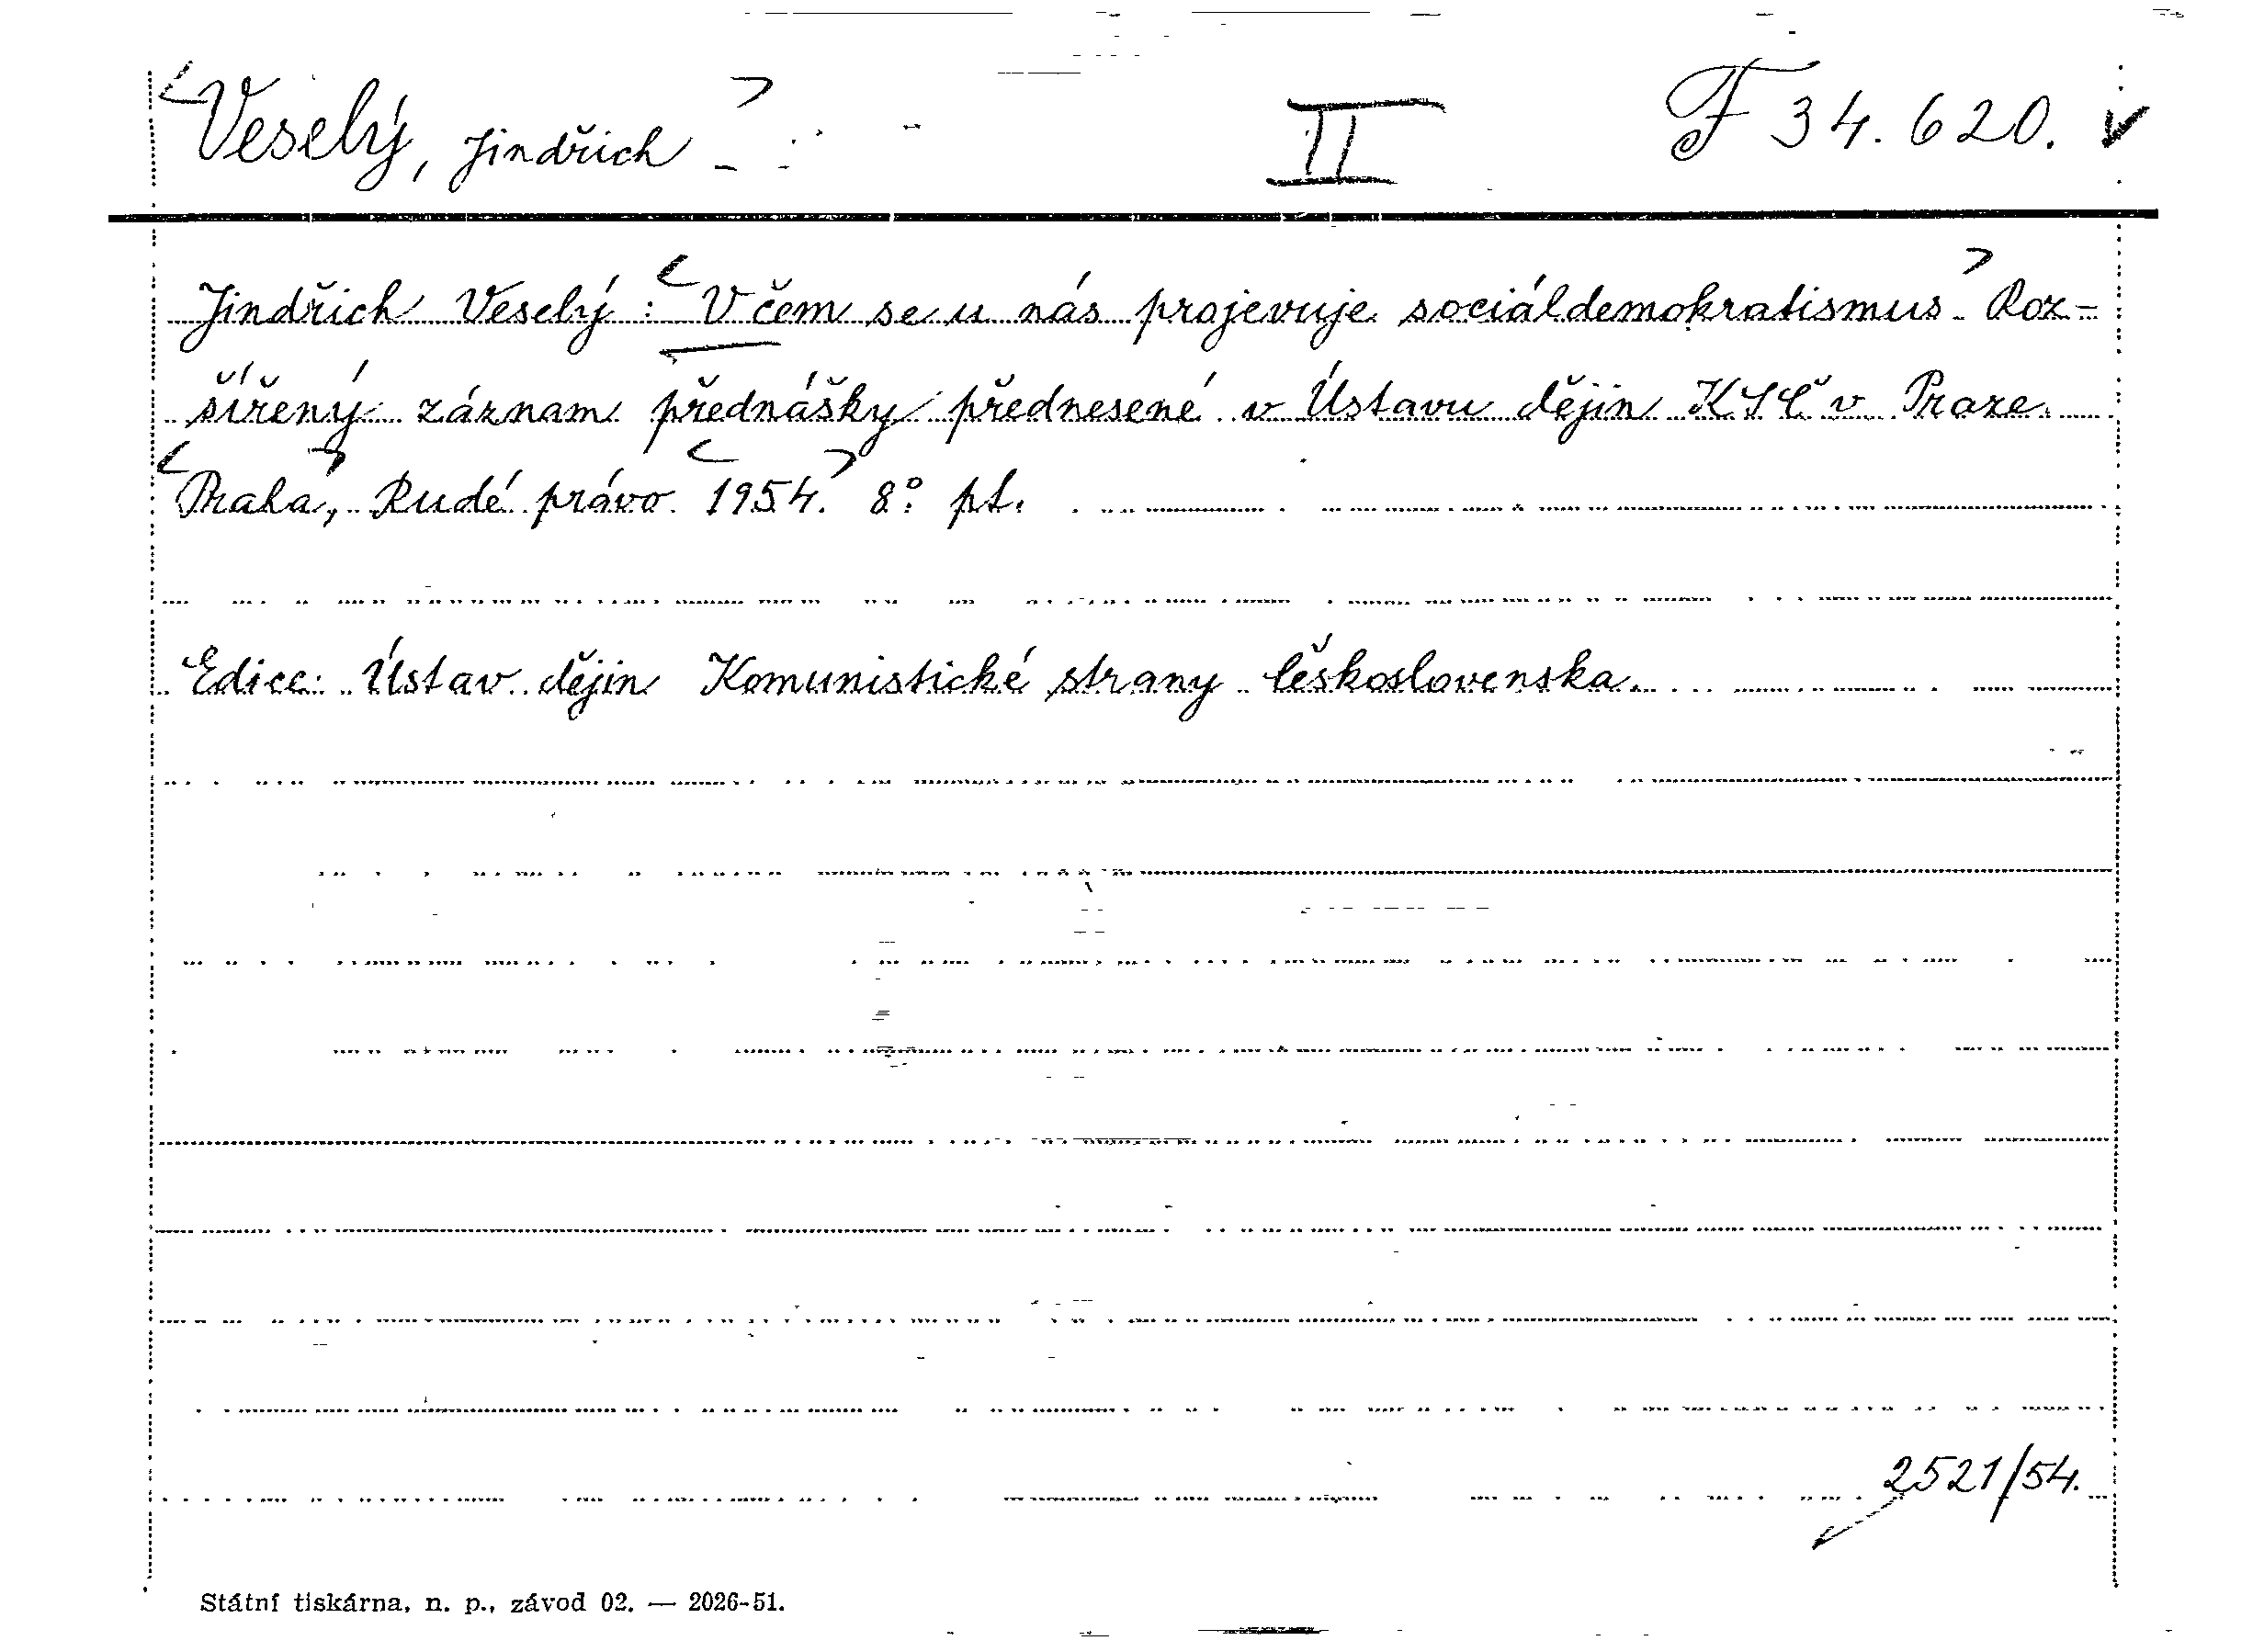 Veselý, Jindřich II F 34.620.
Jindřich Veselý: V čem se u nás projevuje sociáldemokratismus. Roz-
šířený záznam přednášky přednesené v Ústavu dějin KSČ v Praze.
Praha, Rudé právo 1954. 8° pt.
Edice: Ústav dějin Komunistické strany Československa.
2521/54.
Státní tiskárna, n. p., závod 02. — 2026-51.